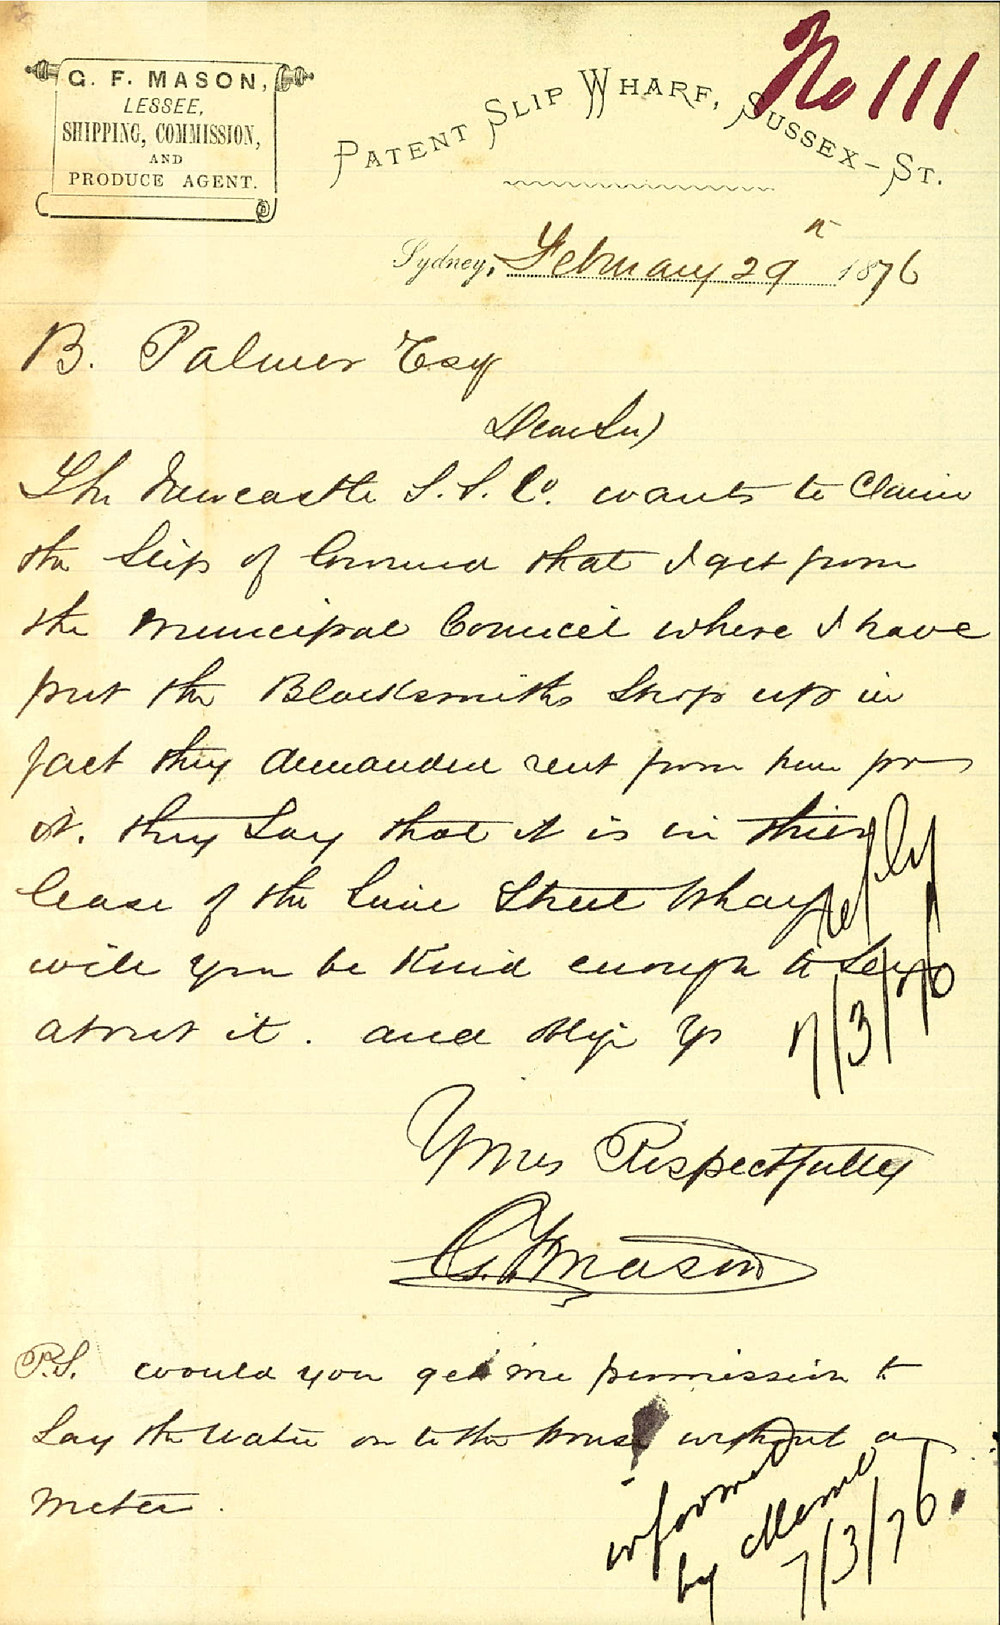 No 111
G. F. MASON,
LESSEE,
SHIPPING, COMMISSION,
AND
PRODUCE AGENT.
PATENT SLIP WHARF, SUSSEX-ST.
Sydney, February 29th 1876
B. Palmer Esq
Dear Sir)
The Newcastle S. S. Co. wants to Claim
the Slip of Ground that I get from
the Municipal Council where I have
put the Blacksmiths Shop up in
fact they demanded rent from him for
it. they Say that it is in thier
lease of the Lime Street Wharf
will you be Kind enough to See
about it. and oblige Yr
Yours Respectfully
G. F. Mason
reply
7/3/76
P.S. would you get me permission to
Lay the Water on to the house without a
meter.
informed
by Memo
7/3/76.